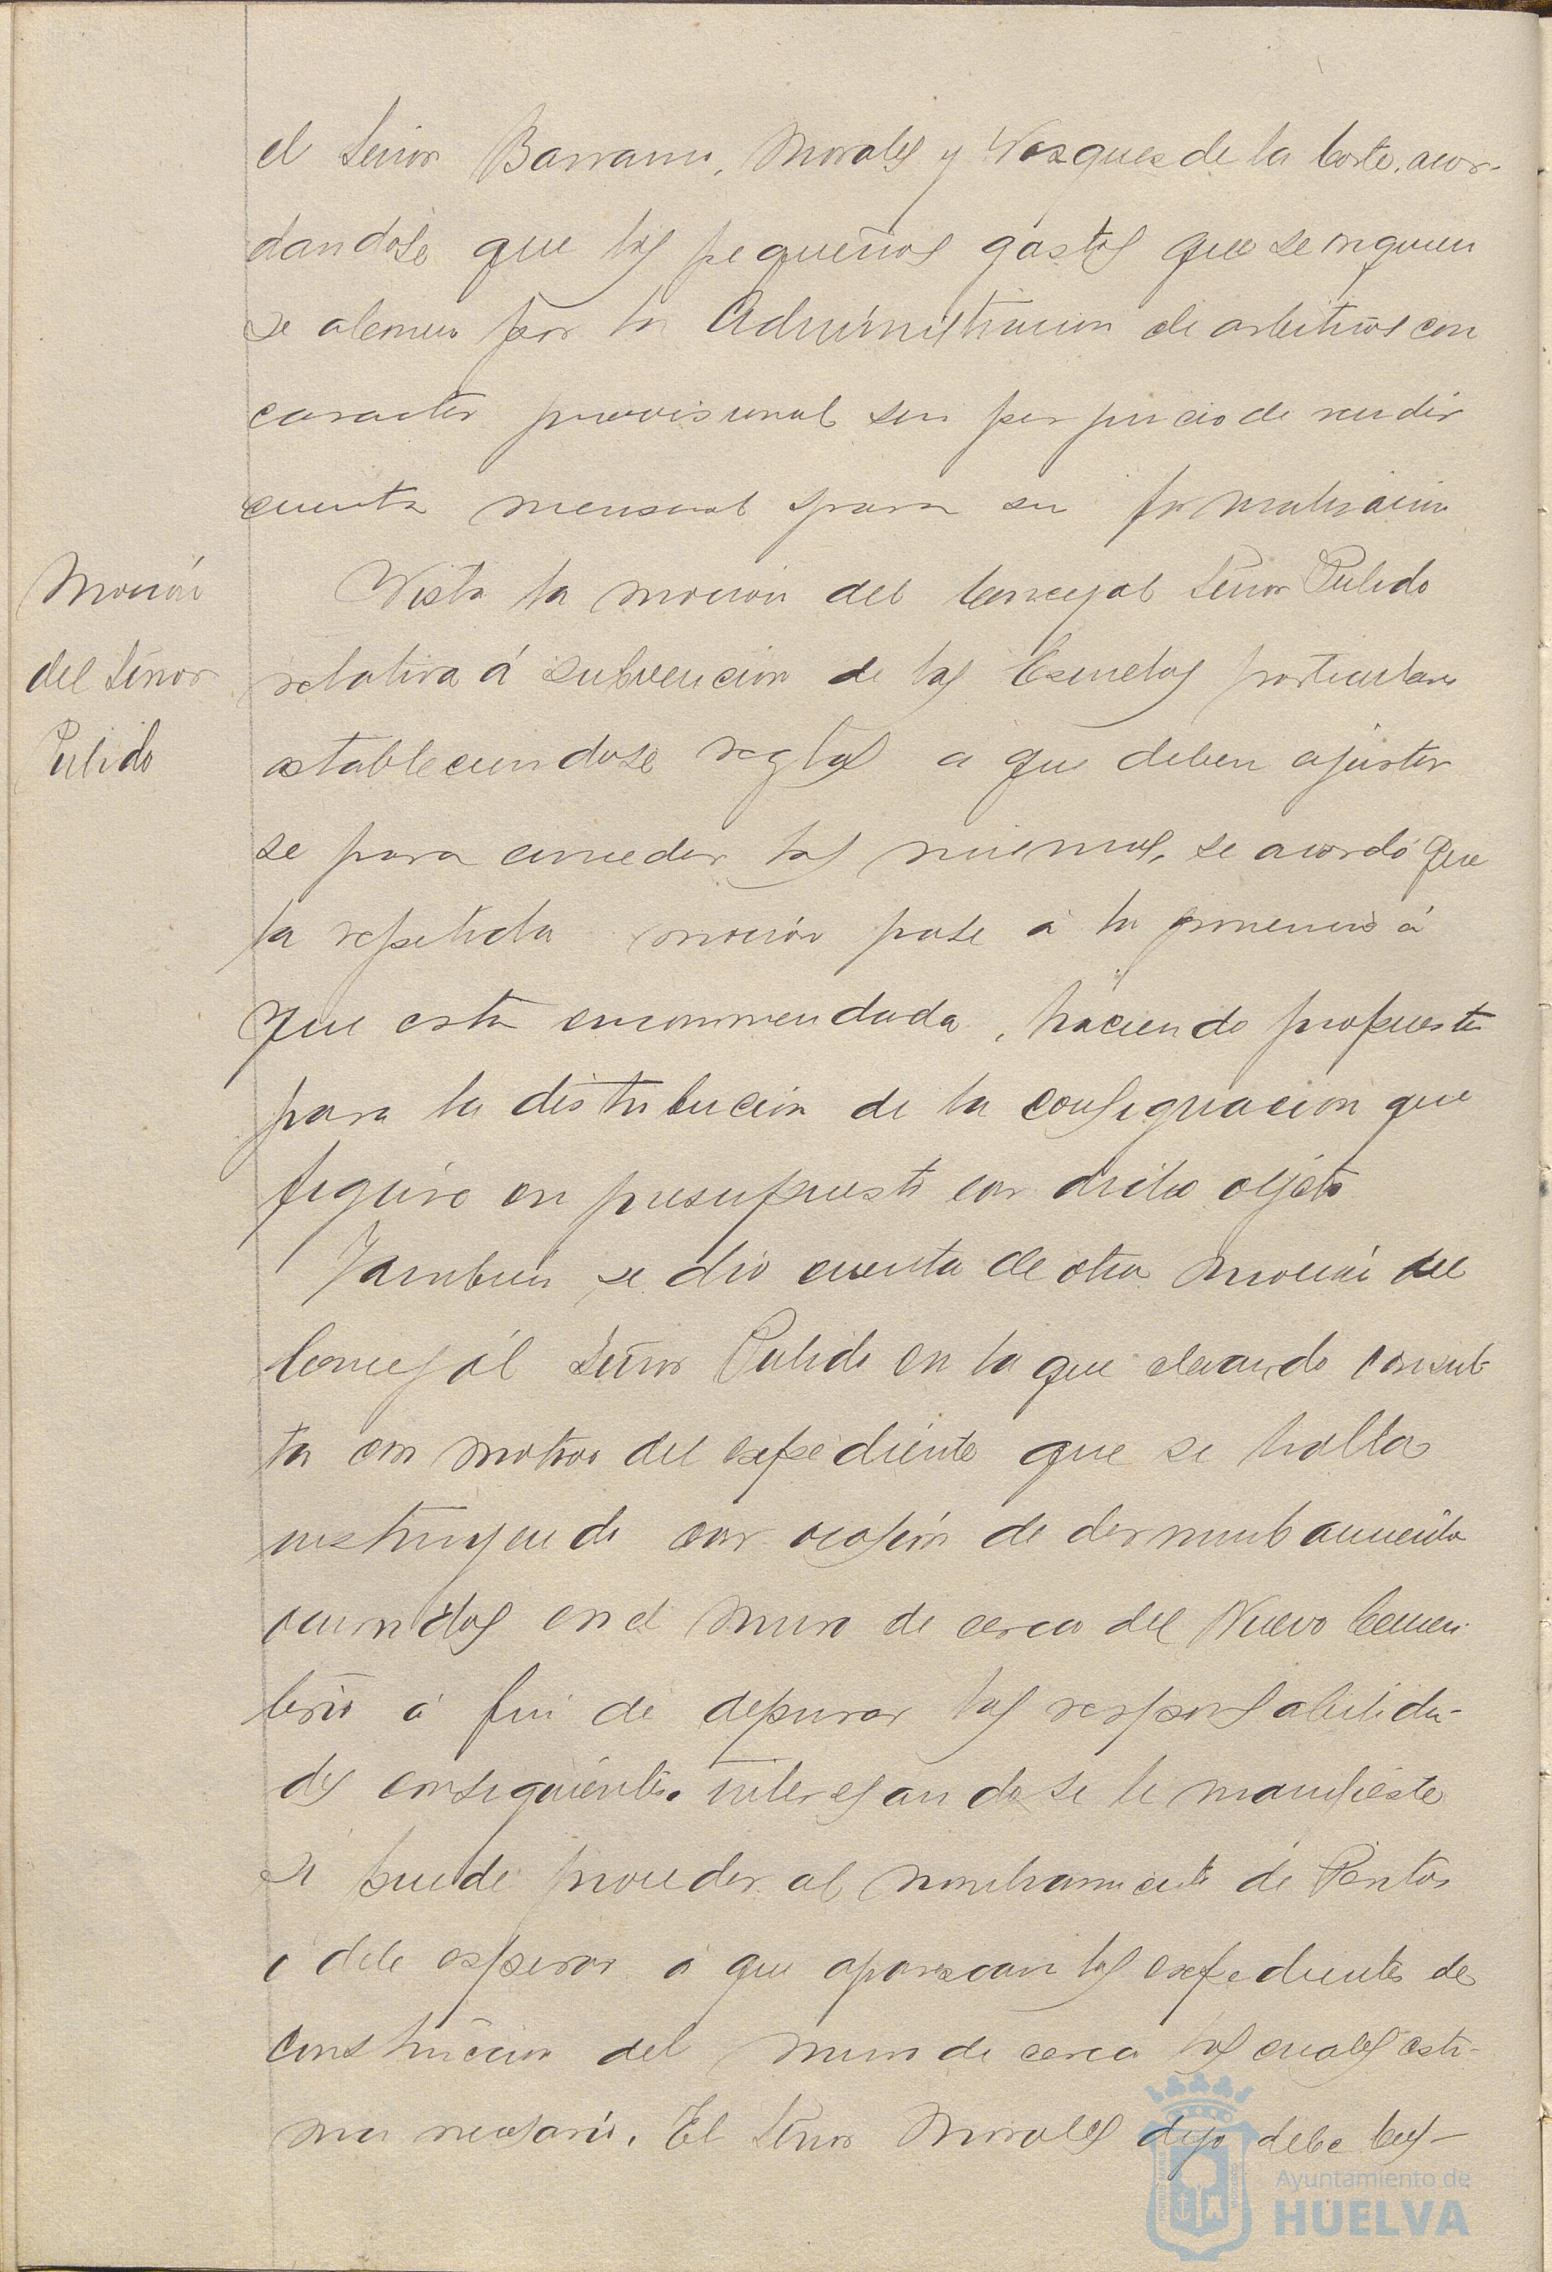 el Señor Barranco, Morales y Vazquez de la Corte, acor-
dandose que los pequeños gastos que se originen
se abonen por la Administracion de arbitrios con
caracter provisional sin perjuicio de rendir
cuenta mensual para su formalización
Moción
del Señor
Pulido
Vista la moción del Concejal Señor Pulido
relativa á subvención de las Escuelas particulares
estableciendose reglas a que deben ajustar
se para conceder las mismas, se acordó que
la repetida moción pase á la ponencia á
que está encommendada, haciendo propuesta
para la distribución de la consignacion que
figura en presupuesto con dicho objeto
Tambien se dió cuenta de otra moción del
Concejal Señor Pulido en la que elevando consul-
ta con motivo del expediente que se halla
instruyendo con ocasión de derrumbamiento
ocurridos en el muro de cerca del Nuevo Cemen-
terio á fin de depurar las responsabilida-
des consiguientes. interesandose le manifieste
si puede proceder al nombramiento de Peritos
ó debe esperar á que aparezcan los expedientes de
construccion del muro de cerca los cuales esti-
ma necesario. El Señor Morales dijo debe bus-
Ayuntamiento de
HUELVA